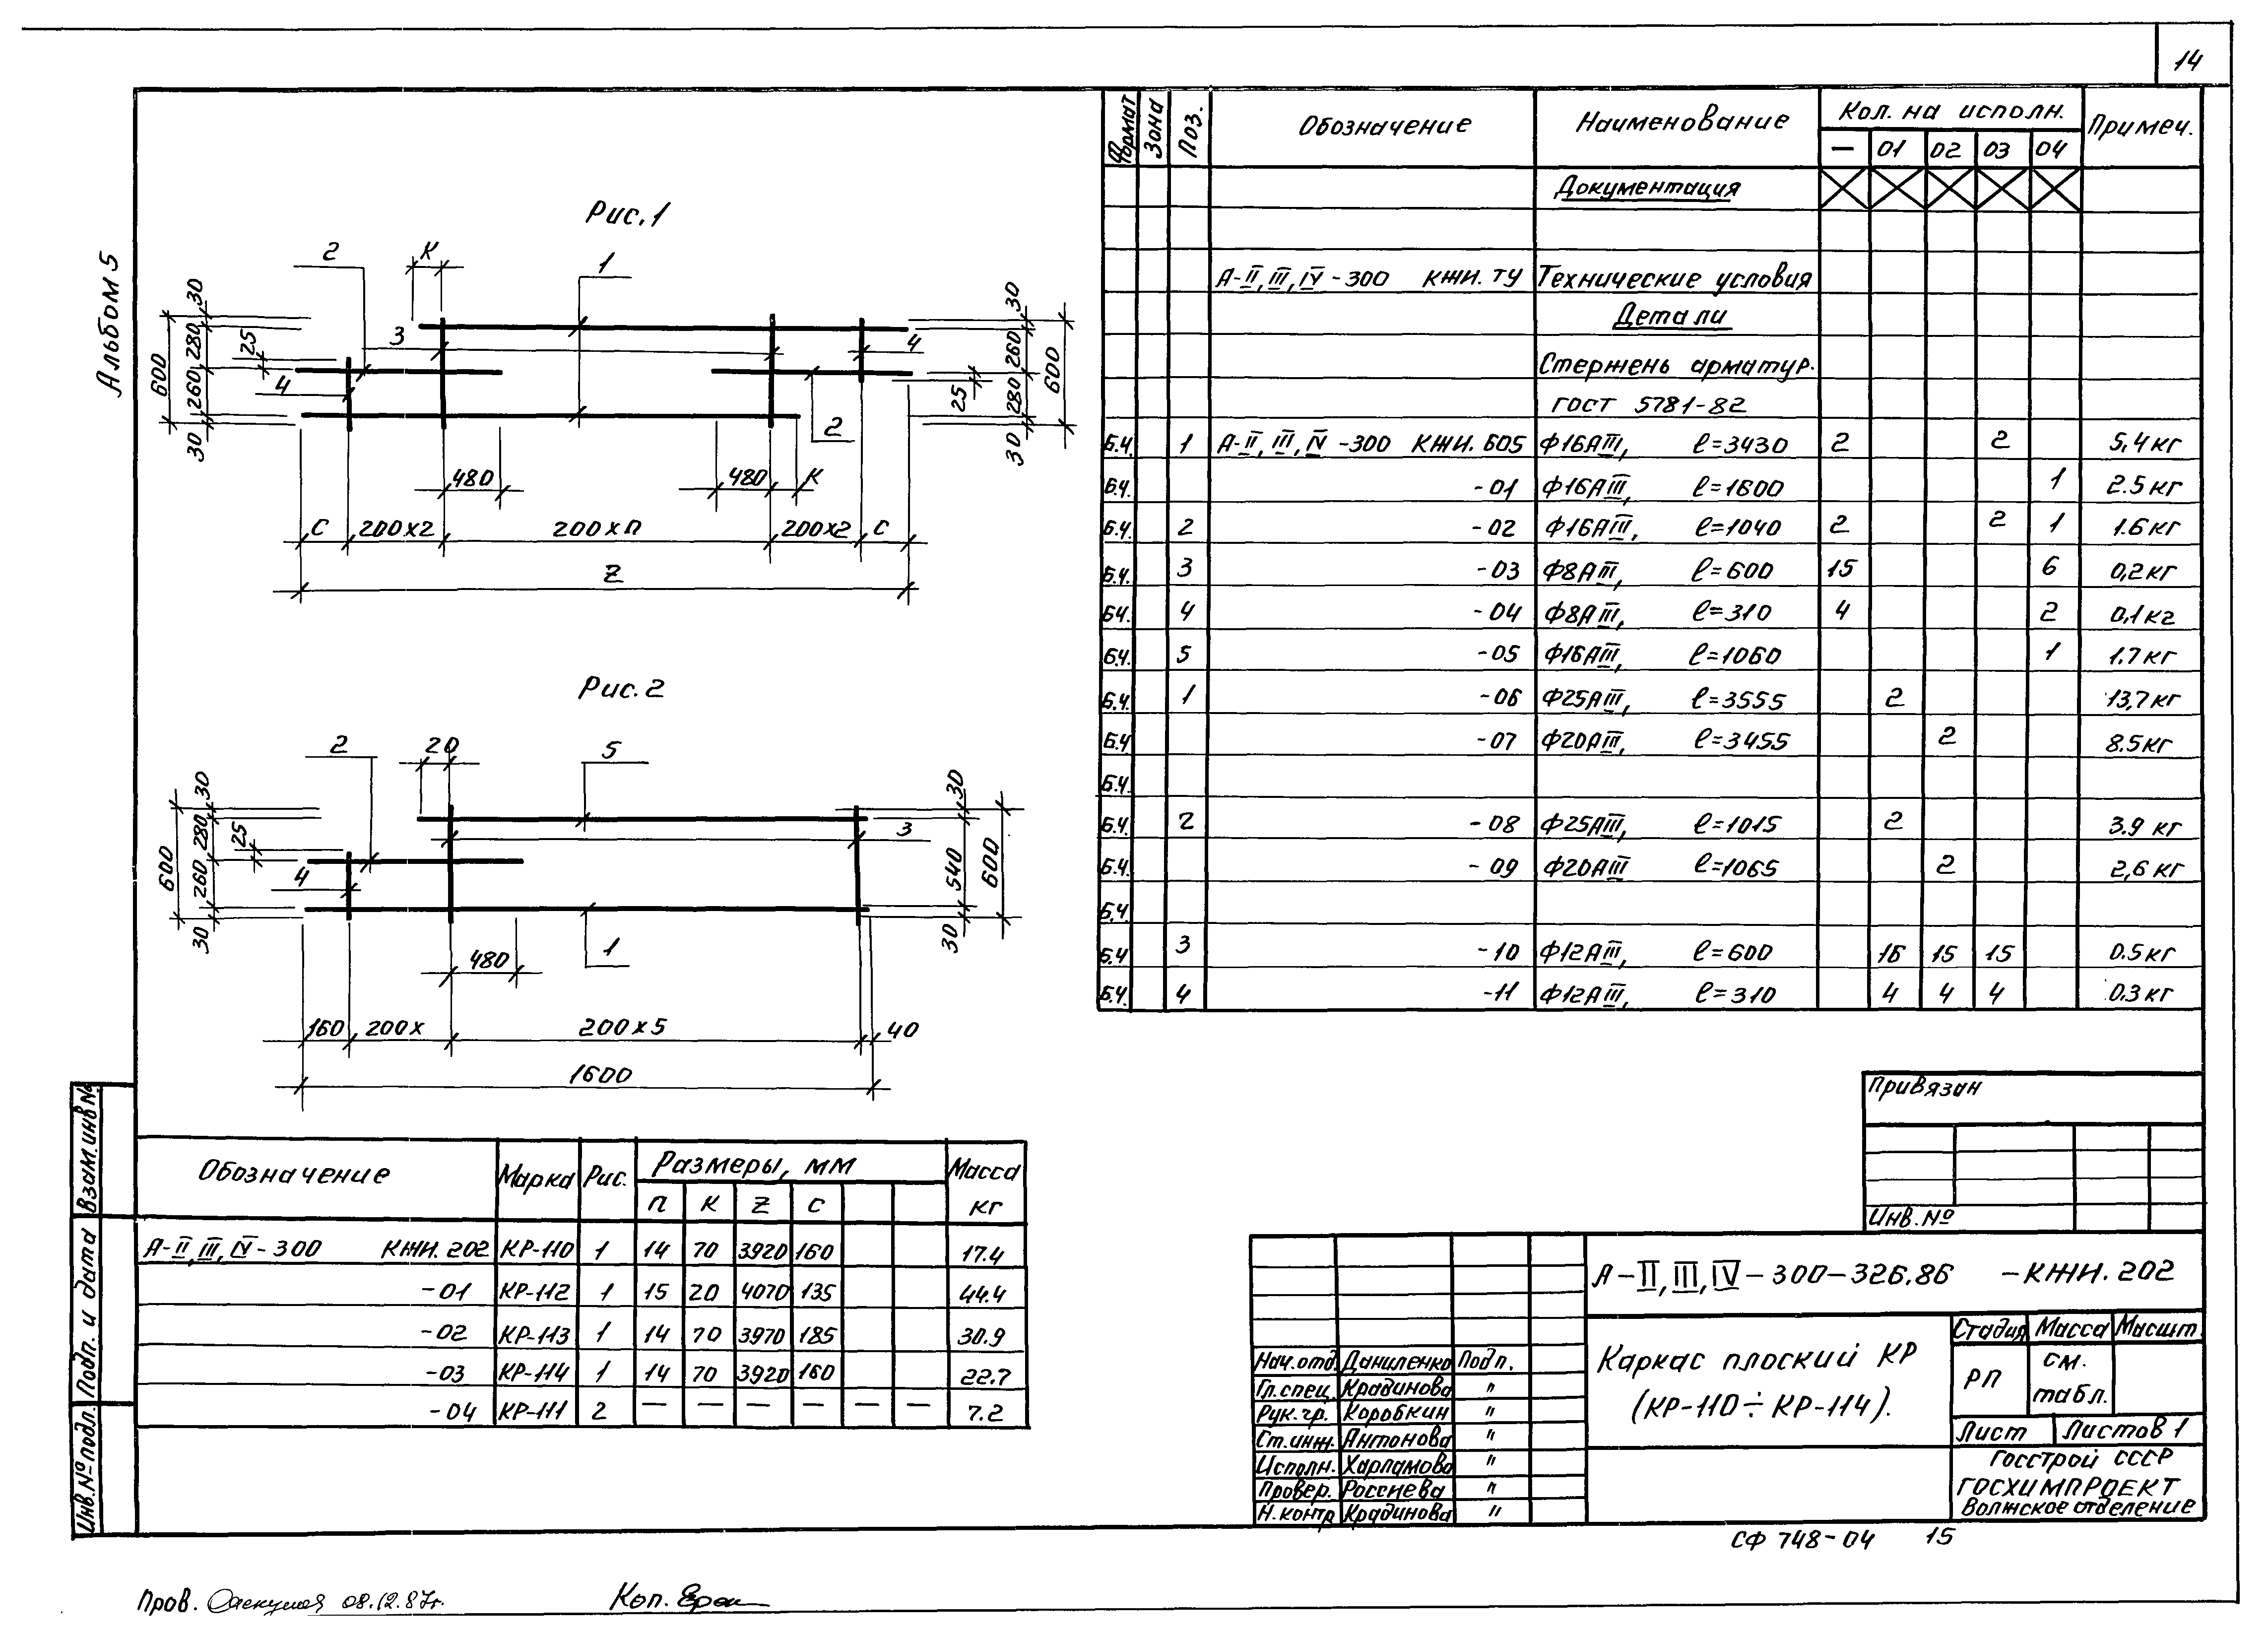 14
Альбом 5
Рис. 1
2
К
1
3
4
4
2
600
30
280
260
30
25
30
260
280
30
25
600
480
480
К
С
200х2
200хп
200х2
С
Z
Рис. 2
2
20
5
3
4
1
600
30
280
260
30
25
30
540
30
600
480
160
200х
200х5
40
1600
Обозначение Марка Рис. Размеры, мм Масса кг
п К Z С
А-II, III, IV-300 КЖИ. 202 КР-110 1 14 70 3920 160 17.4
-01 КР-112 1 15 20 4070 135 44.4
-02 КР-113 1 14 70 3970 185 30.9
-03 КР-114 1 14 70 3920 160 22.7
-04 КР-111 2 — — — — — — 7.2
Формат Зона Поз. Обозначение Наименование Кол. на исполн. Примеч.
— 01 02 03 04
Документация
А-II, III, IV-300 КЖИ. ТУ Технические условия
Детали
Стержень арматур.
ГОСТ 5781-82
Б.Ч. 1 А-II, III, IV-300 КЖИ. Б05 Ф16АIII, ℓ=3430 2 2 5,4 кг
Б.Ч. -01 Ф16АIII, ℓ=1600 1 2.5 кг
Б.Ч. 2 -02 Ф16АIII, ℓ=1040 2 2 1 1.6 кг
Б.Ч. 3 -03 Ф8АIII, ℓ=600 15 6 0,2 кг
Б.Ч. 4 -04 Ф8АIII, ℓ=310 4 2 0,1 кг
Б.Ч. 5 -05 Ф16АIII, ℓ=1060 1 1.7 кг
Б.Ч. 1 -06 Ф25АIII, ℓ=3555 2 13,7 кг
Б.Ч -07 Ф20АIII, ℓ=3455 2 8.5 кг
Б.Ч.
Б.Ч. 2 -08 Ф25АIII, ℓ=1015 2 3.9 кг
Б.Ч. -09 Ф20АIII ℓ=1065 2 2,6 кг
Б.Ч.
Б.Ч 3 -10 Ф12АIII, ℓ=600 16 15 15 0.5 кг
Б.Ч. 4 -11 Ф12АIII, ℓ=310 4 4 4 0.3 кг
Привязан
Инв. №
А-II, III, IV-300-326.86 -КЖИ. 202
Каркас плоский КР
(КР-110÷КР-114).
Стадия Масса Масшт.
РП см. табл.
Лист Листов 1
Госстрой СССР
ГОСХИМПРОЕКТ
Волжское отделение
Нач. отд. Даниленко Подп.
Гл. спец. Крадинова "
Рук. гр. Коробкин "
Ст. инж. Антонова "
Исполн. Харламова "
Провер. Россиева "
Н. контр Крадинова "
Взам. инв №
Подп. и дата
Инв. № подл.
СФ 748-04 15
Пров. 08.12.87г.
Коп.